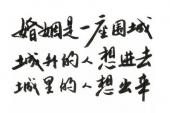 婚姻是一座围城
城外的人想进去
城里的人想出来